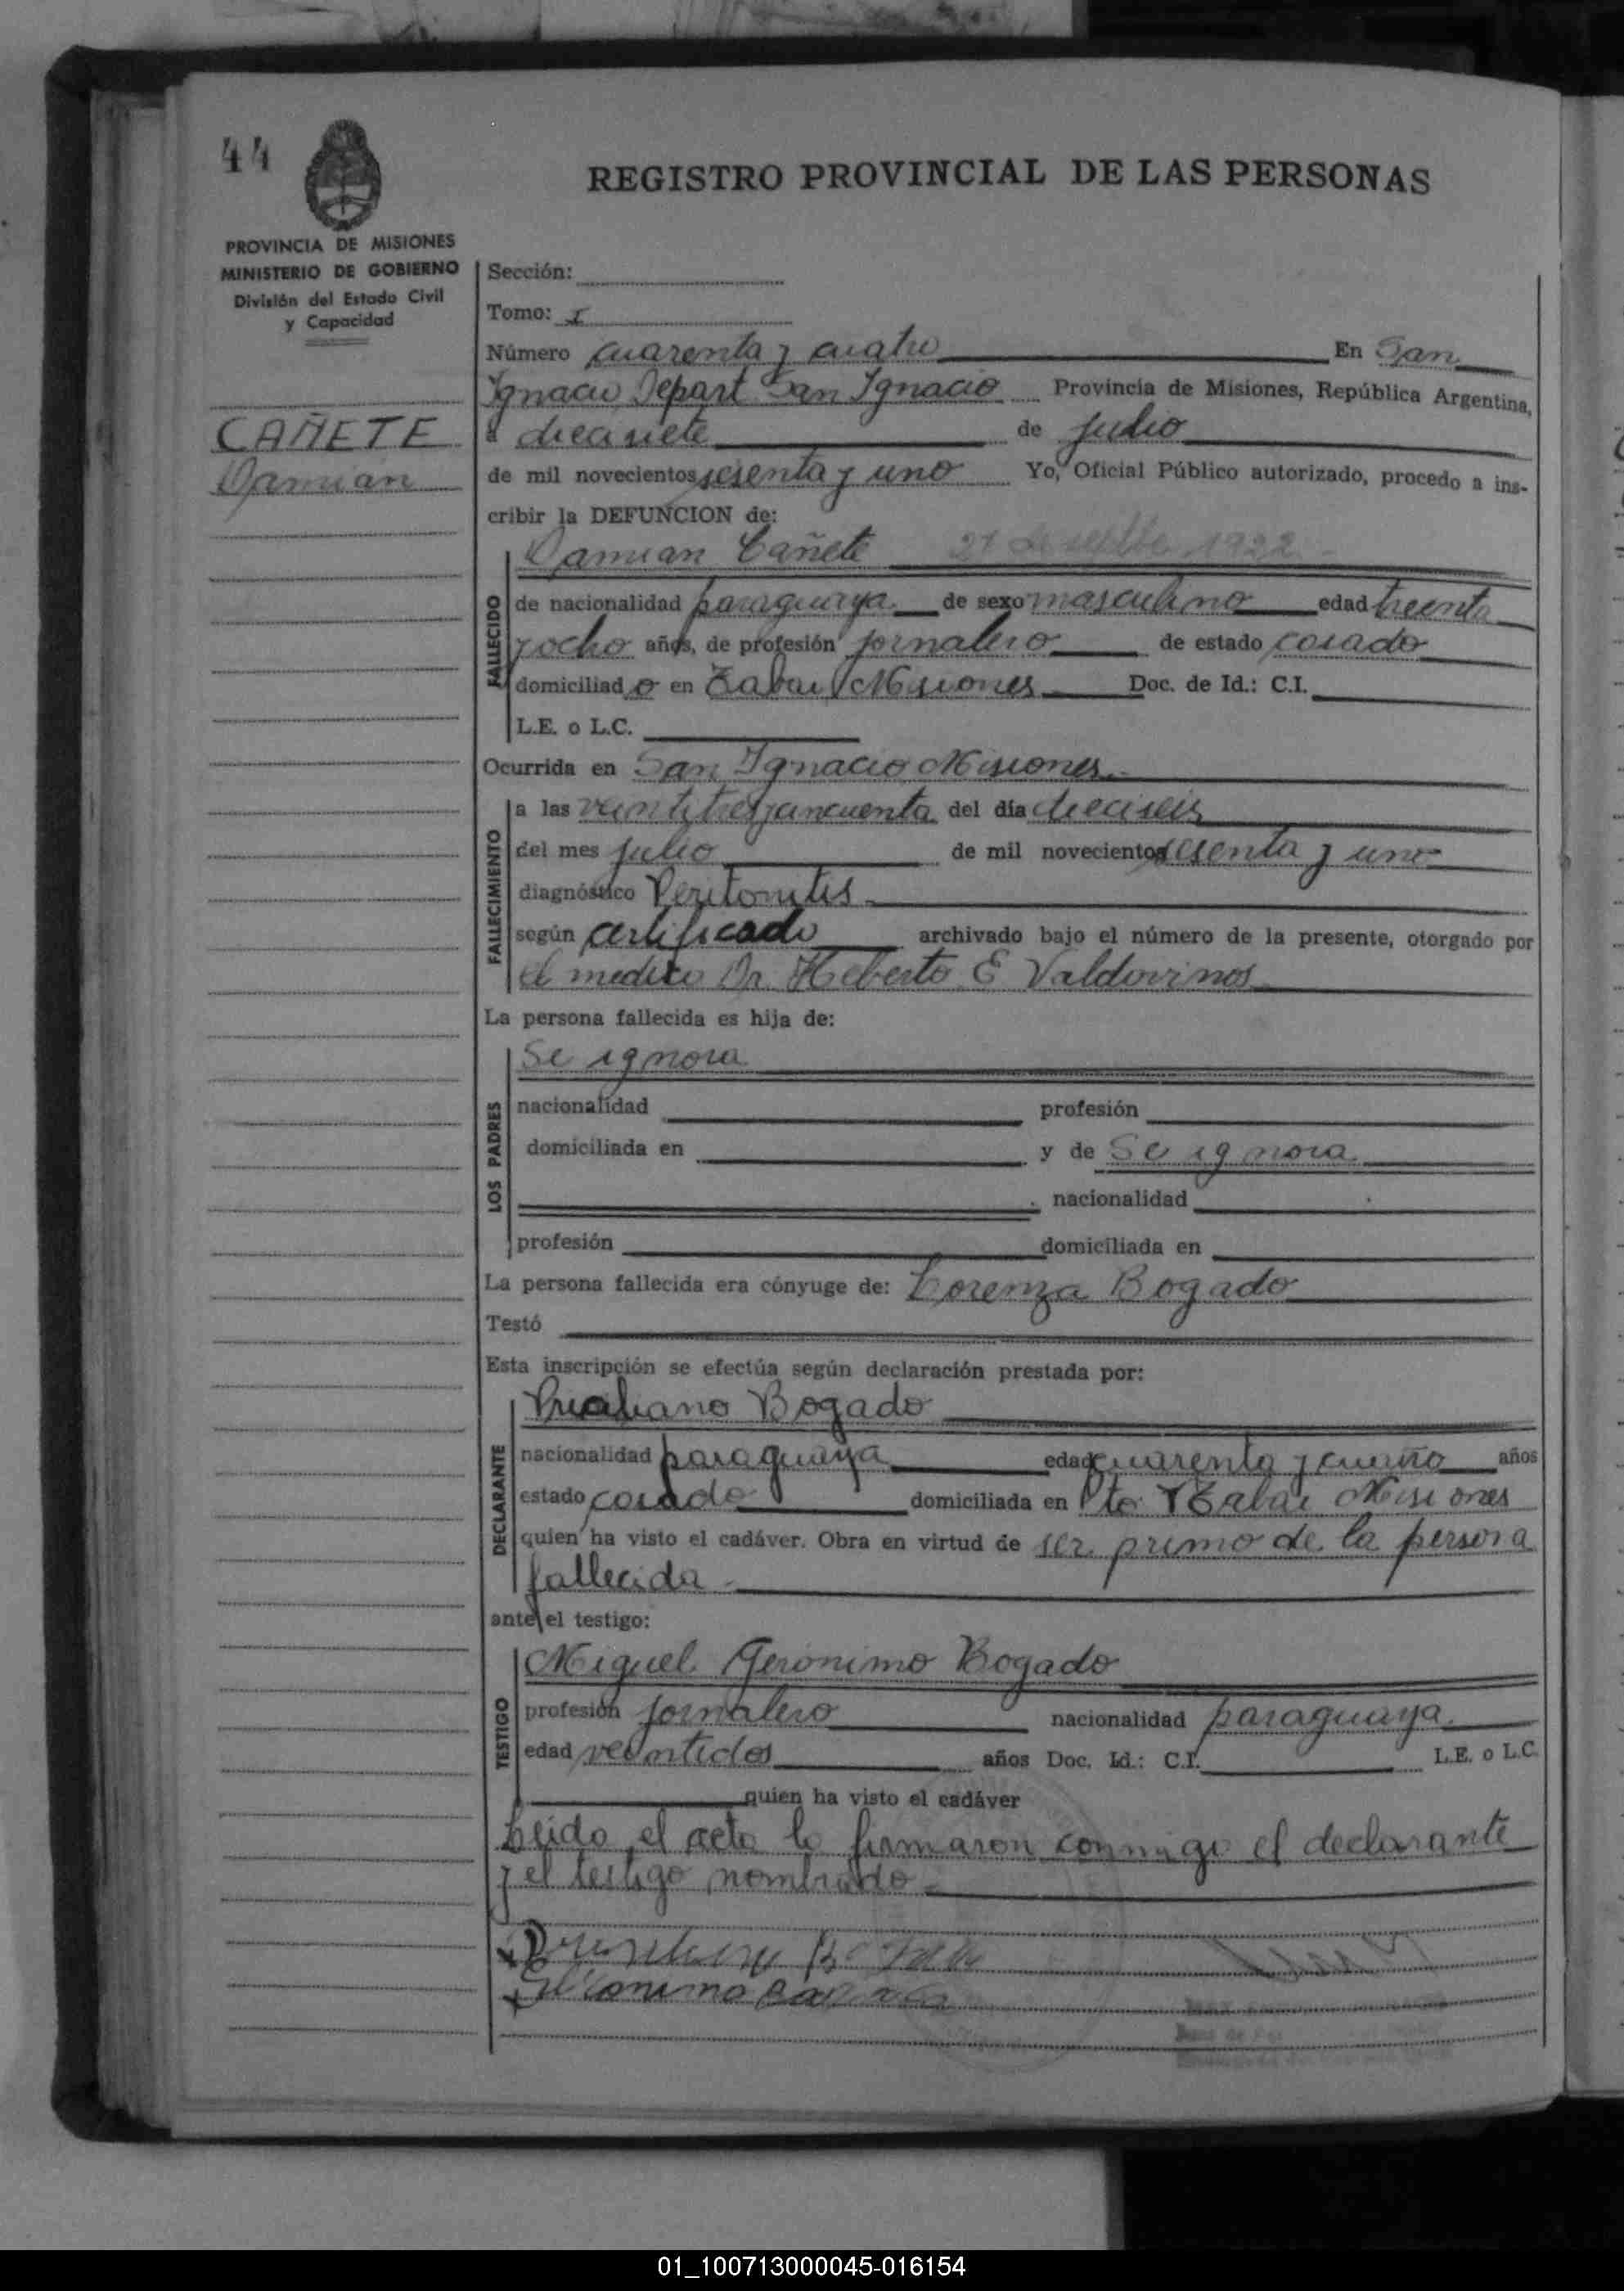 44
REGISTRO PROVINCIAL DE LAS PERSONAS
PROVINCIA DE MISIONES
MINISTERIO DE GOBIERNO
División del Estado Civil
y Capacidad
CAÑETE
Damian
Sección:
Tomo: I
Número cuarenta y cuatro En San
Ignacio Depart San Ignacio Provincia de Misiones, República Argentina,
a diecisiete de julio
de mil novecientos sesenta y uno Yo, Oficial Público autorizado, procedo a ins-
cribir la DEFUNCION de:
Damian Cañete 27 de 1922
FALLECIDO
de nacionalidad paraguaya de sexo masculino edad treinta
y ocho años, de profesión jornalero de estado casado
domiciliad o en Tabai Misiones Doc. de Id.: C.I.
L.E. o L.C.
Ocurrida en San Ignacio Misiones
FALLECIMIENTO
a las veintitres y cincuenta del día dieciseis
del mes julio de mil novecientos sesenta y uno
diagnóstico Peritonitis
según certificado archivado bajo el número de la presente, otorgado por
el medico Dr. Heberto E Valdovinos
La persona fallecida es hija de:
LOS PADRES
Se ignora
nacionalidad profesión
domiciliada en y de Se ignora
nacionalidad
profesión domiciliada en
La persona fallecida era cónyuge de: Lorenza Bogado
Testó
Esta inscripción se efectúa según declaración prestada por:
DECLARANTE
Bogado
nacionalidad paraguaya edad cuarenta y cuatro años
estado casado domiciliada en Pto Tabai Misiones
quien ha visto el cadáver. Obra en virtud de ser primo de la persona
fallecida
ante el testigo:
TESTIGO
Miguel Geronimo Bogado
profesión jornalero nacionalidad paraguaya
edad veintidos años Doc. Id.: C.I. L.E. o L.C.
quien ha visto el cadáver
Leido el acta lo firmaron conmigo el declarante
y el testigo nombrado
01_100713000045-016154